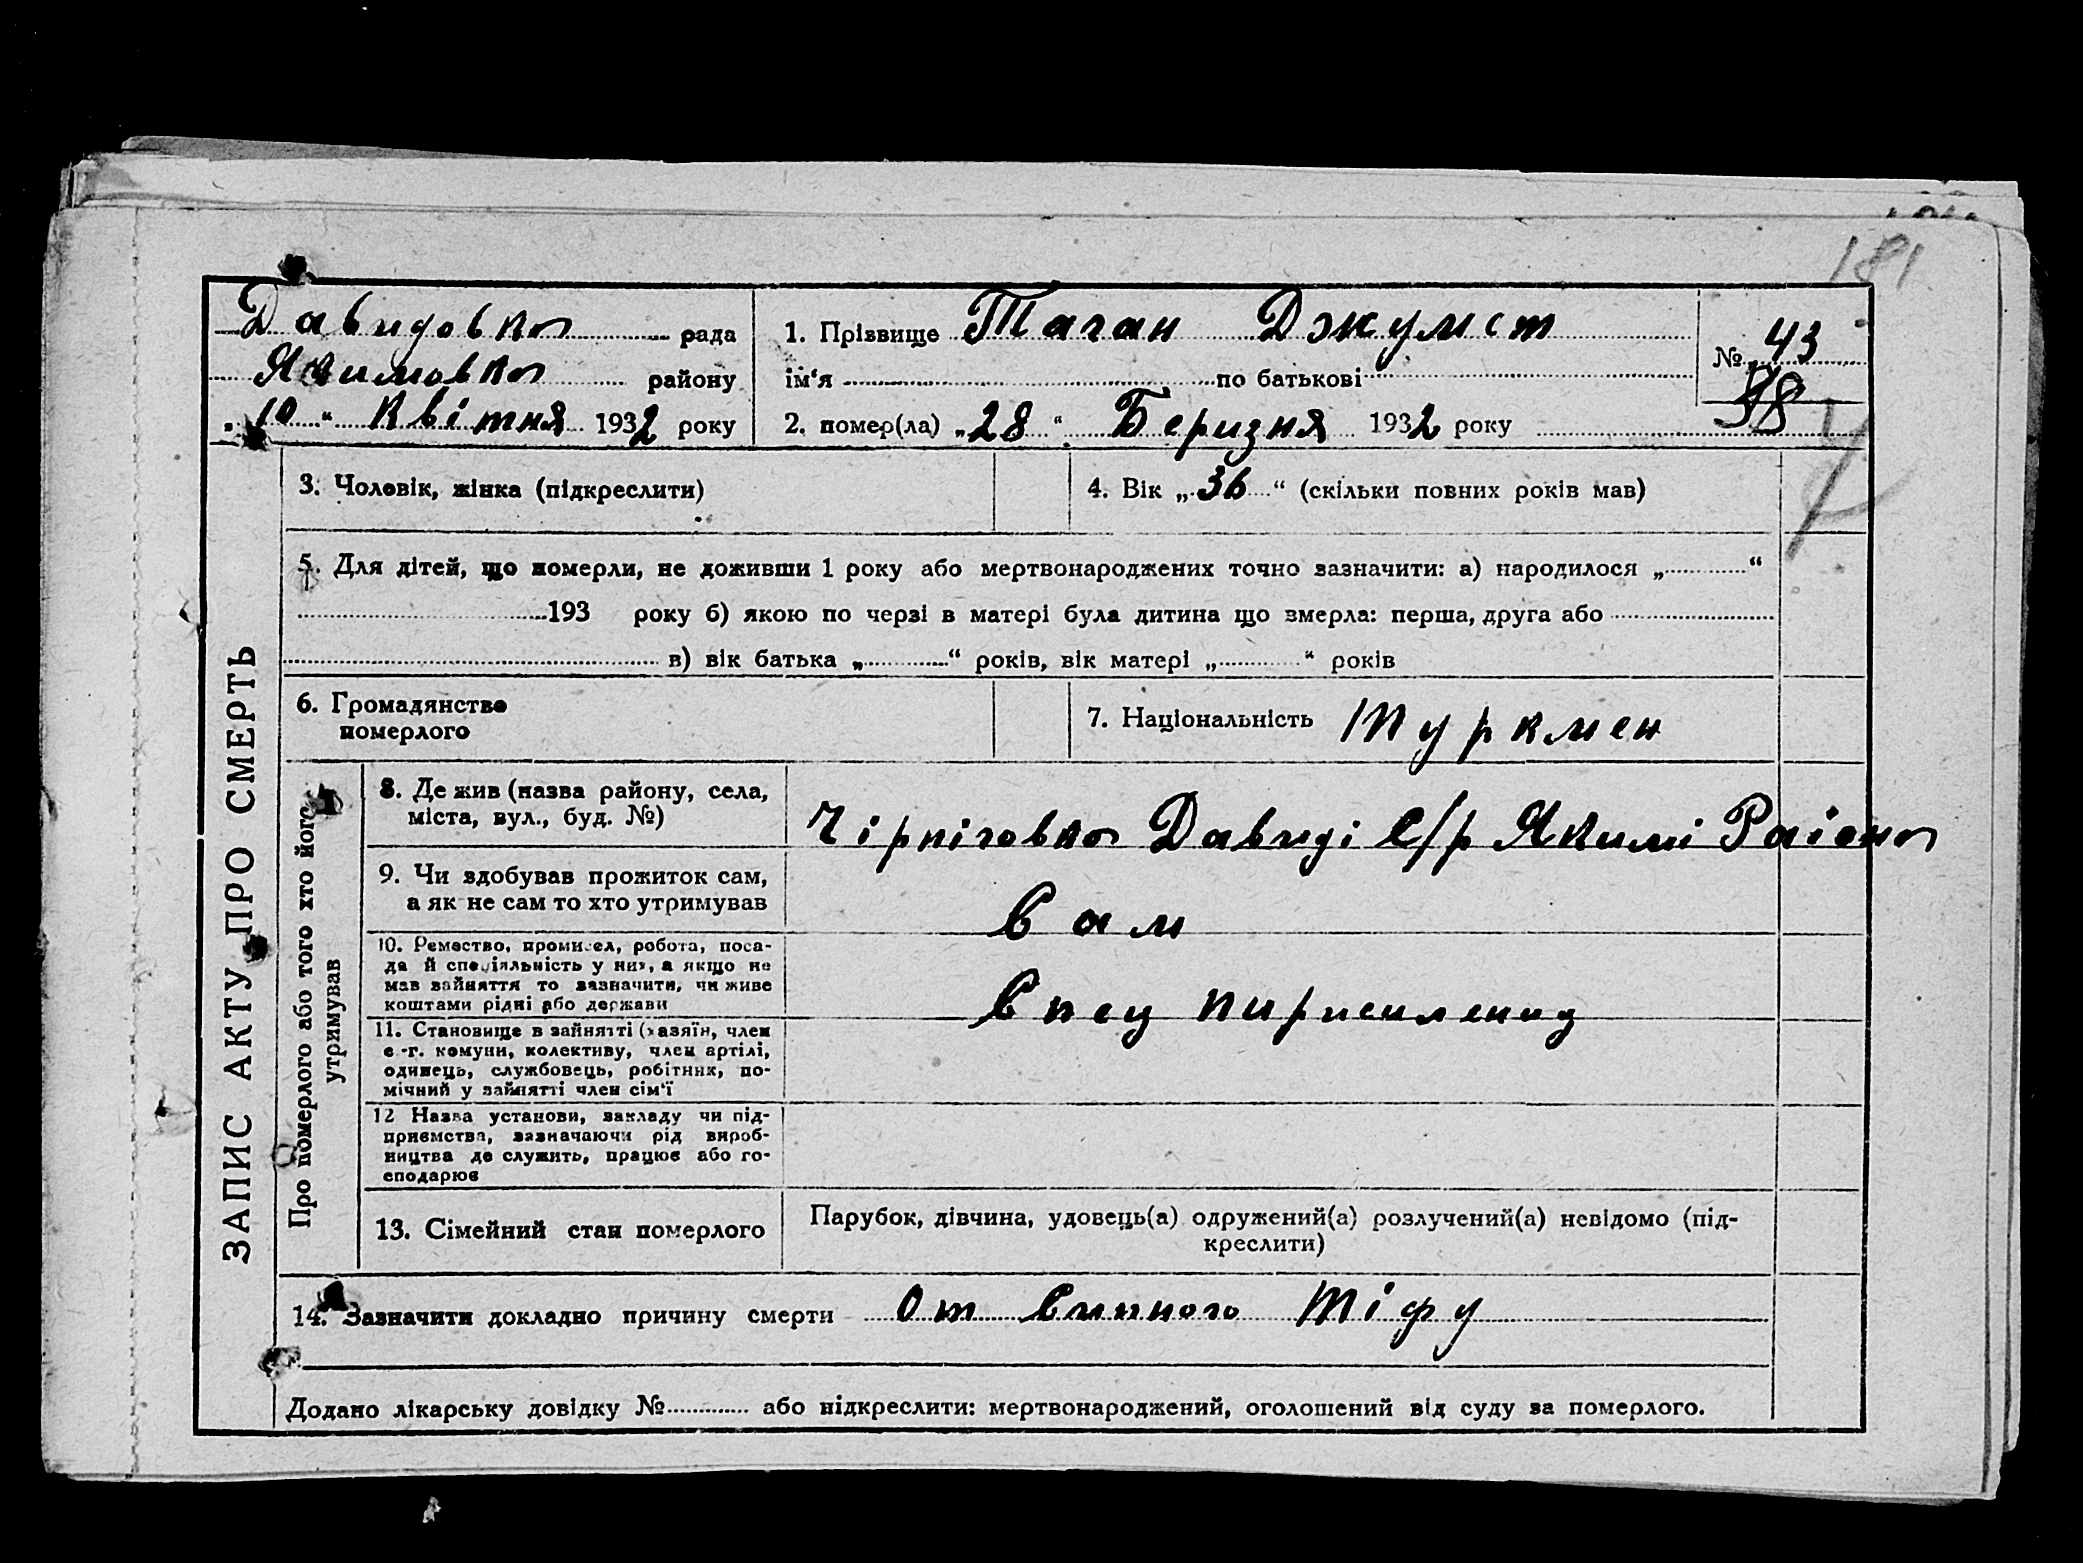 181
Давидовка рада
Якимовка району
„10“ Квітня 1932 року
1. Прізвище Таган Джумст
ім‘я по батькові
2. помер(ла) „28“ Беризня 1932 року
№ 43
58
3. Чоловік, жінка (підкреслити)
4. Вік „36“ (скільки повних років мав)
5. Для дітей, що померли, не доживши 1 року або мертвонароджених точно зазначити: а) народилося „ “
193 року б) якою по черзі в матері була дитина що змерла: перша, друга або
в) вік батька „ “ років, вік матері „ “ років
6. Громадянство
померлого
7. Національність Туркмен
ЗАПИС АКТУ ПРО СМЕРТЬ
Про померлого або того хто його
утримував
8. Де жив (назва району, села,
міста, вул., буд. №)
Чірніговка Давиді С/р Якимі Раіона
9. Чи здобував прожиток сам,
а як не сам то хто утримував
Сам
10. Ремество, промисел, робота, поса-
да й спеціяльність у них, а якщо не
мав зайняття то зазначити, чи живе
коштами рідні або держави
Спец
11. Становище в зайнятті (хазяїн, член
с.-г. комуни, колективу, член артілі,
одинець, службовець, робітник, по-
мічний у зайнятті член сім‘ї
12 Назва установи, закладу чи під-
приємства, зазначаючи рід вироб-
ництва де служить, працює або го-
сподарює
13. Сімейний стан померлого
Парубок, дівчина, удовець(а) одружений(а) розлучений(а) невідомо (під-
креслити)
14. Зазначити докладно причину смерти От Сипного Тіфу
Додано лікарську довідку № або підкреслити: мертвонароджений, оголошений від суду за померлого.